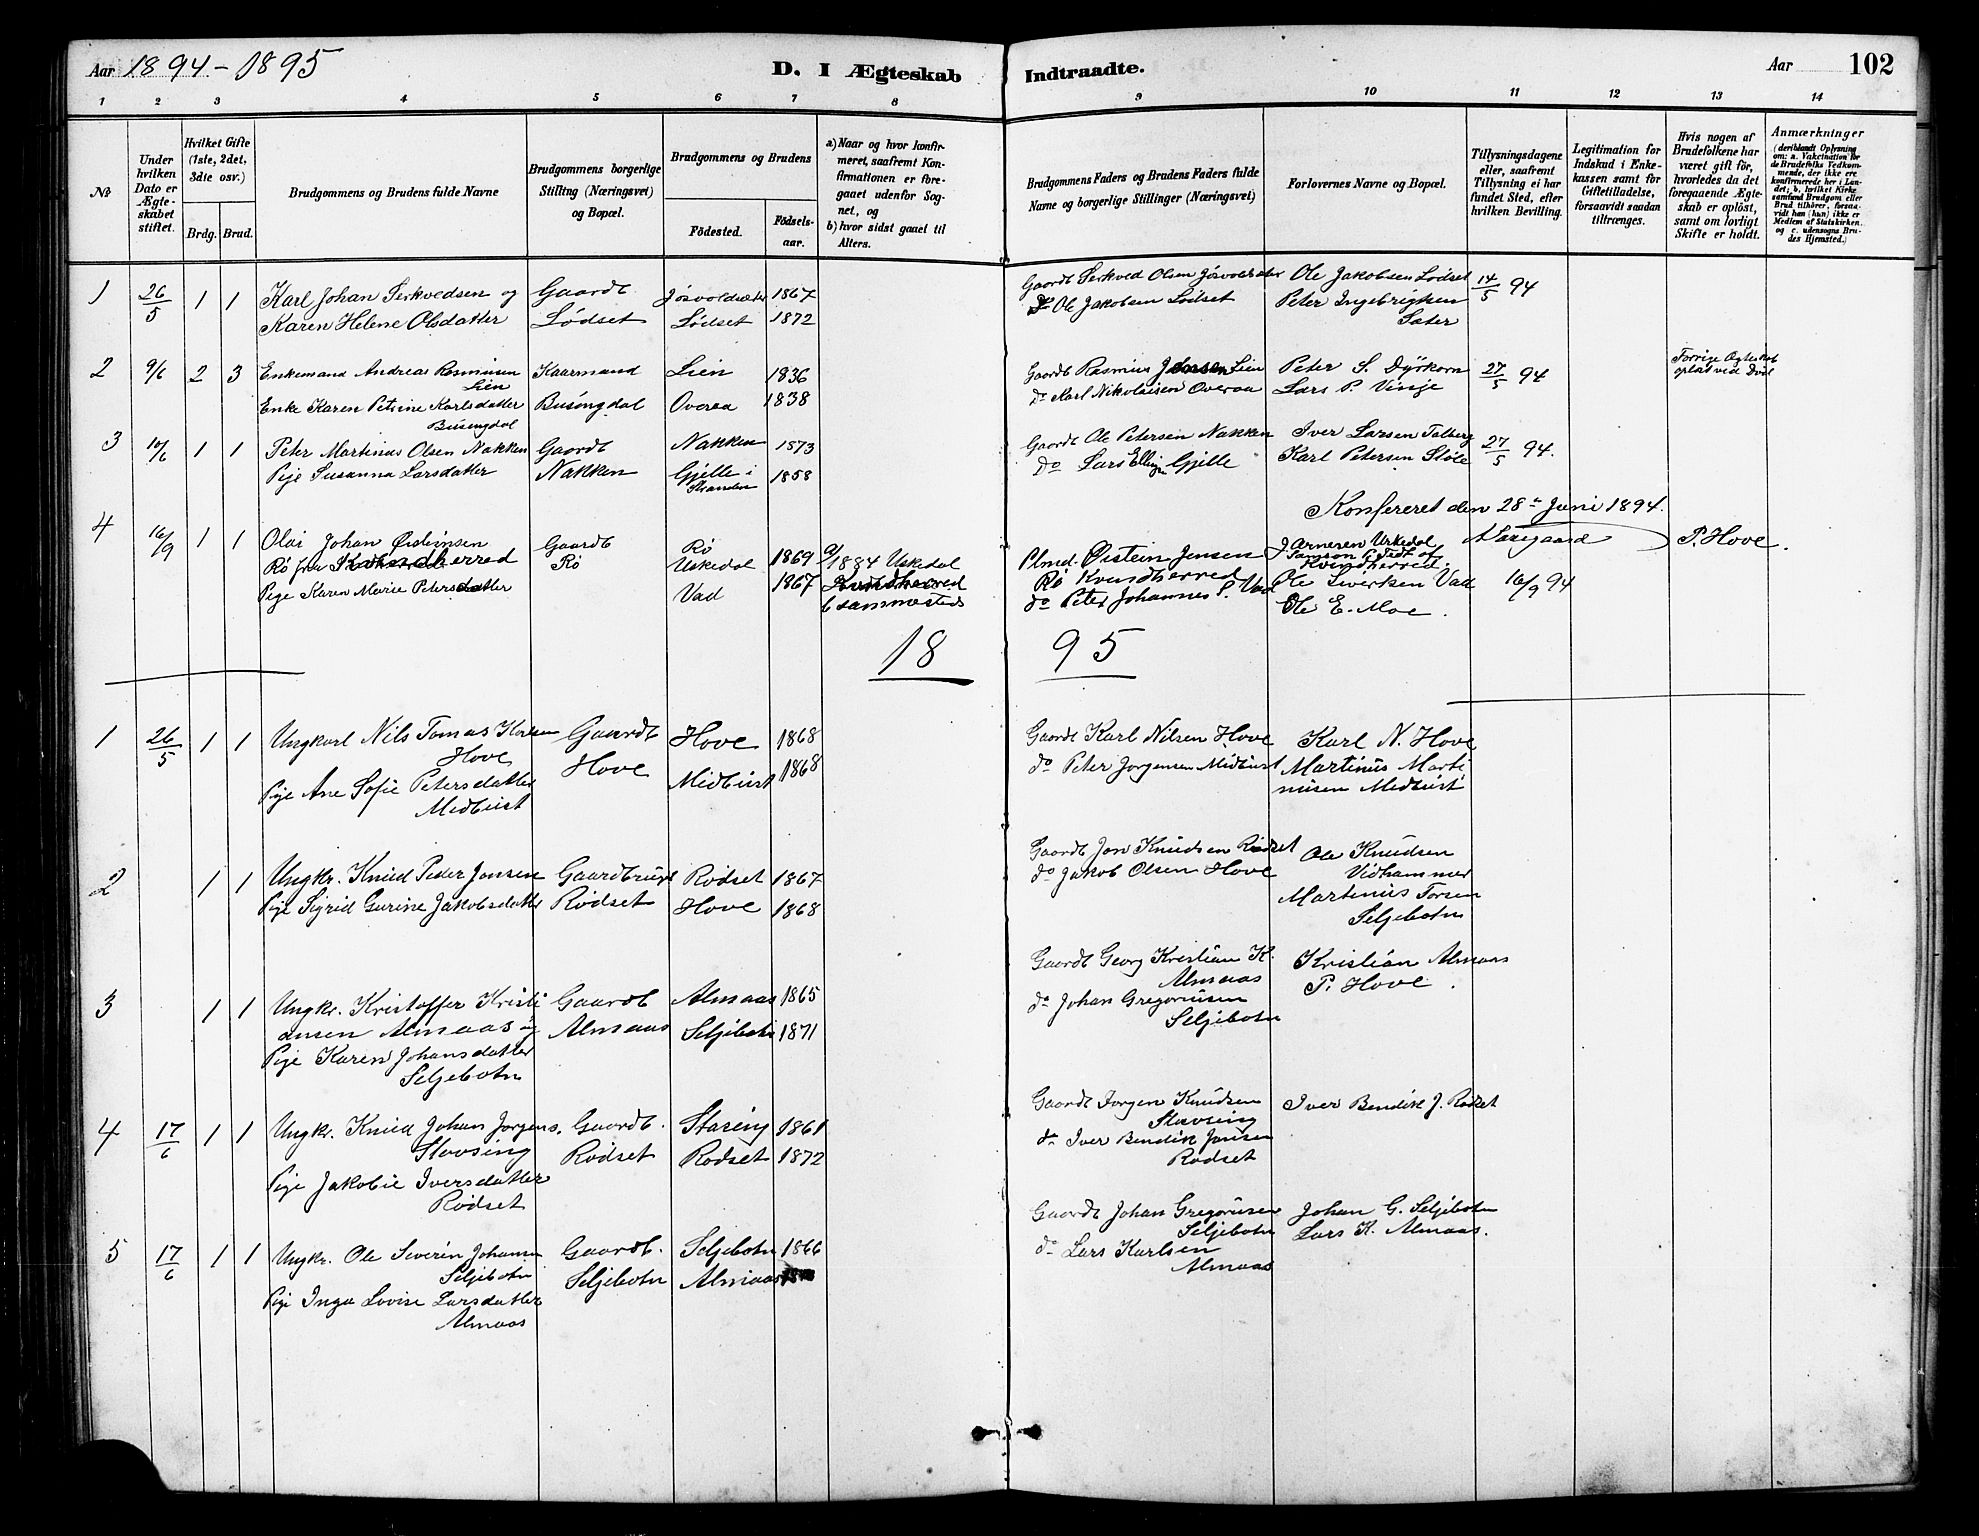 Aar 1894-1895
D. I Ægteskab Indtraadte.
Aar 102
1 2 3 4 5 6 7 8 9 10 11 12 13 14
No
Under hvilken Dato er Ægteskabet stiftet.
Hvilket Gifte (1ste, 2det, 3die osv.)
Brdg. Brud.
Brudgommens og Brudens fulde Navne
Brudgommens borgerlige Stilling (Næringsvei) og Bopæl.
Brudgommens og Brudens
Födested.
Födselsaar.
a) Naar og hvor konfirmeret, saafremt Konfirmationen er foregaaet udenfor Sognet, og
b) hvor sidst gaaet til Alters.
Brudgommens Faders og Brudens Faders fulde Navne og borgerlige Stillinger (Næringsvei)
Forlovernes Navne og Bopæl.
Tillysningsdagene eller, saafremt Tillysning ei har fundet Sted, efter hvilken Bevilling.
Legitimation for Indskud i Enkekassen samt for Giftetilladelse, forsaavidt saadan tiltrænges.
Hvis nogen af Brudefolkene har været gift för, hvorledes da det foregaaende Ægteskab er oplöst, samt om lovligt Skifte er holdt.
Anmærkninger (deriblandt Oplysning om: a. Vakcination for de Brudefolks Vedkommende, der ikke ere konfirmerede her i Landet; b. hvilket Kirkesamfund Brudgom eller Brud tilhörer, forsaavidt han (hun) ikke er Medlem af Statskirken, og c. udensogns Brudes Hjemsted.)
1 26/5 1 1 Karl Johan Serkvedsen og Gaardb 1867 Gaardb Serkved Olsen Ole Jakobsen Lødset 14/5 94
Karen Helene Olsdatter Lødset Lødset 1872 do Ole Jakobsen Lødset Peter Ingebrigtsen
Sæter
2 9/6 2 3 Enkemand Andreas Rasmusen Kaarmand Lien 1836 Gaardb Rasmus Jensen Lien Peter S. Dyrkorn 27/5 94 Forrige Ægteskab
Lien opløst ved Død
Enke Karen Petrine Karlsdatter Busengdal Overaa 1838 do Karl Nikolaisen Overaa Lars P. Vinje
Busengdal
3 10/6 1 1 Peter Martinus Olsen Nakken Gaardb Nakken 1873 Gaardb Ole Petersen Nakken Iver Larsen 27/5 94.
Pige Susanna Larsdatter Nakken Gjelle i 1858 do Lars Elling Gjelle Karl Petersen Støle
Stranden
Konfereret den 28de Juni 1894.
P. Hove.
4 16/9 1 1 Olai Johan Øisteinsen Gaardb Rø 1869 1884 Uskedal Plmd. Øistein Jensen J. Arnesen Uskedal
Rø fra Kvindherred Rø Uskedal Kvindherred Rø Kvindherred Samson P. Tedt af Kvindherred.
Pige Karen Marie Petersdatter Vad 1867 b sammesteds do Peter Johannes S. Vad Ole Siversen Vad 16/9 94
Ole E. Moe.
1895
1 26/5 1 1 Ungkarl Nils Tomas Karlsen Gaardb Hove 1868 Gaardb Karl Nilsen Hove Karl N. Hove
Hove Hove
Pige Ane Sofie Petersdatter Midtust 1868 do Peter Jørgensen Midtust Martinus Marti
Midtust nusen Midtust
2 1 1 Ungkr. Knud Peder Jonsen Gaardbruger Rødset 1867 Gaardb Jon Knudsen Rødset Ole Knudsen
Vidhammer
Pige Sigrid Gurine Jakobsdatter Rødset Hove 1868 do Jakob Olsen Hove Martinus Torsen
Seljebotn
3 1 1 Ungkr. Kristoffer Kristi Gaardb Almaas 1865 Gaardb Georg Kristian K. Kristian Almaas
ansen Almaas og Almaas Seljebotn 1871 Almaas P. Hove.
Pige Karen Johansdatter do Johan Gregoriusen
Seljebotn Seljebotn
4 17/6 1 1 Ungkr. Knud Johan Jørgens. Gaardb. 1861 Gaardb Jørgen Knudsen Iver Bendik J. Rødset
Rødset Rødset 1872
Pige Jakobie Iversdatter do Iver Bendik Jonsen
Rødset Rødset
5 17/6 1 1 Ungkr. Ole Severin Johansen Gaardb. Seljebotn 1866 Gaardb Johan Gregoriusen Johan G. Seljebotn
Seljebotn Seljebotn Almaas Seljebotn Lars K. Almaas.
Pige Inga Lovise Larsdatter do Lars Karlsen
Almaas Almaas